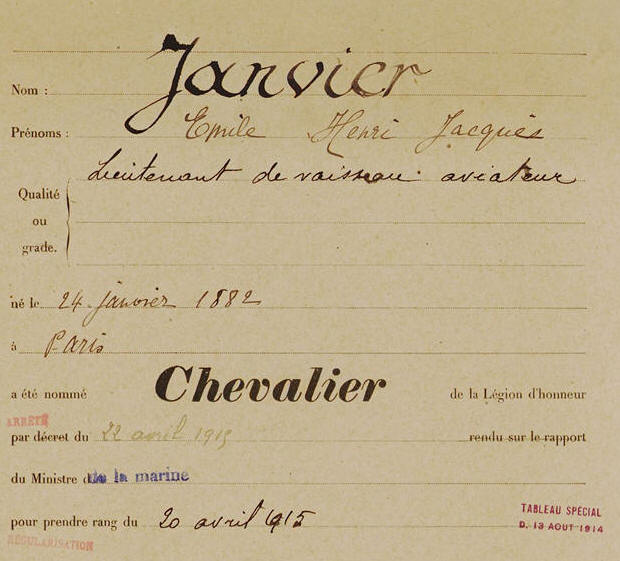 Nom : Janvier
Prénoms : Emile Henri Jacques
Qualité ou grade. Lieutenant de vaisseau aviateur
né le 24 janvier 1882
à Paris
a été nommé Chevalier de la Légion d'honneur
ARRÊTÉ
par décret du 22 avril 1915 rendu sur le rapport
du Ministre de la marine
pour prendre rang du 20 avril 1915
TABLEAU SPÉCIAL
D. 13 AOUT 1914
RÉGULARISATION